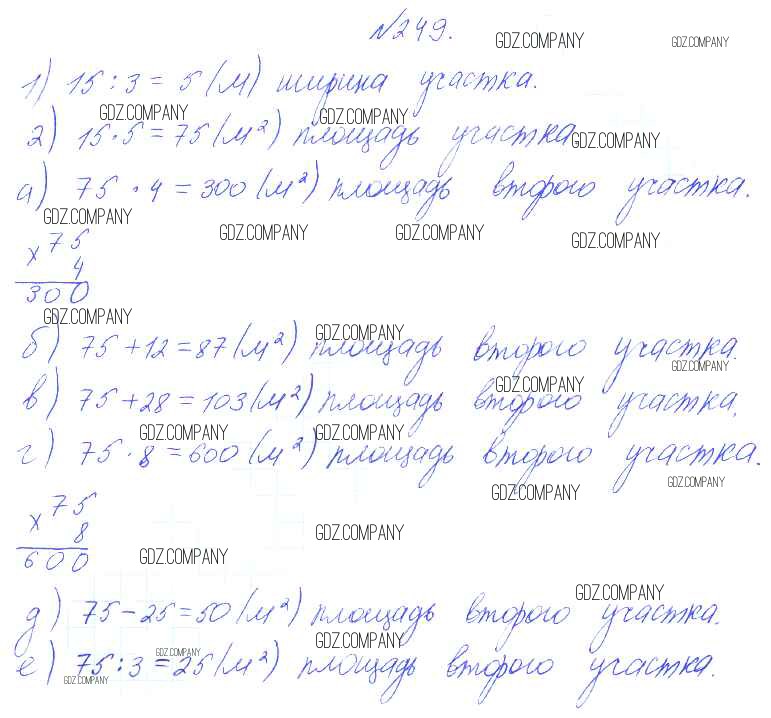 №249.
GDZ.COMPANY GDZ.COMPANY
1) 15 : 3 = 5 (м) ширина участка.
GDZ.COMPANY GDZ.COMPANY
2) 15 · 5 = 75 (м²) площадь участка
GDZ.COMPANY
а) 75 · 4 = 300 (м²) площадь второго участка.
GDZ.COMPANY GDZ.COMPANY GDZ.COMPANY GDZ.COMPANY
х 75
4
300
GDZ.COMPANY GDZ.COMPANY
б) 75 + 12 = 87 (м²) площадь второго участка.
GDZ.COMPANY GDZ.COMPANY
в) 75 + 28 = 103 (м²) площадь второго участка.
GDZ.COMPANY GDZ.COMPANY
г) 75 · 8 = 600 (м²) площадь второго участка.
GDZ.COMPANY GDZ.COMPANY
х 75
8
600
GDZ.COMPANY GDZ.COMPANY
GDZ.COMPANY
д) 75 − 25 = 50 (м²) площадь второго участка.
GDZ.COMPANY GDZ.COMPANY
е) 75 : 3 = 25 (м²) площадь второго участка.
GDZ.COMPANY